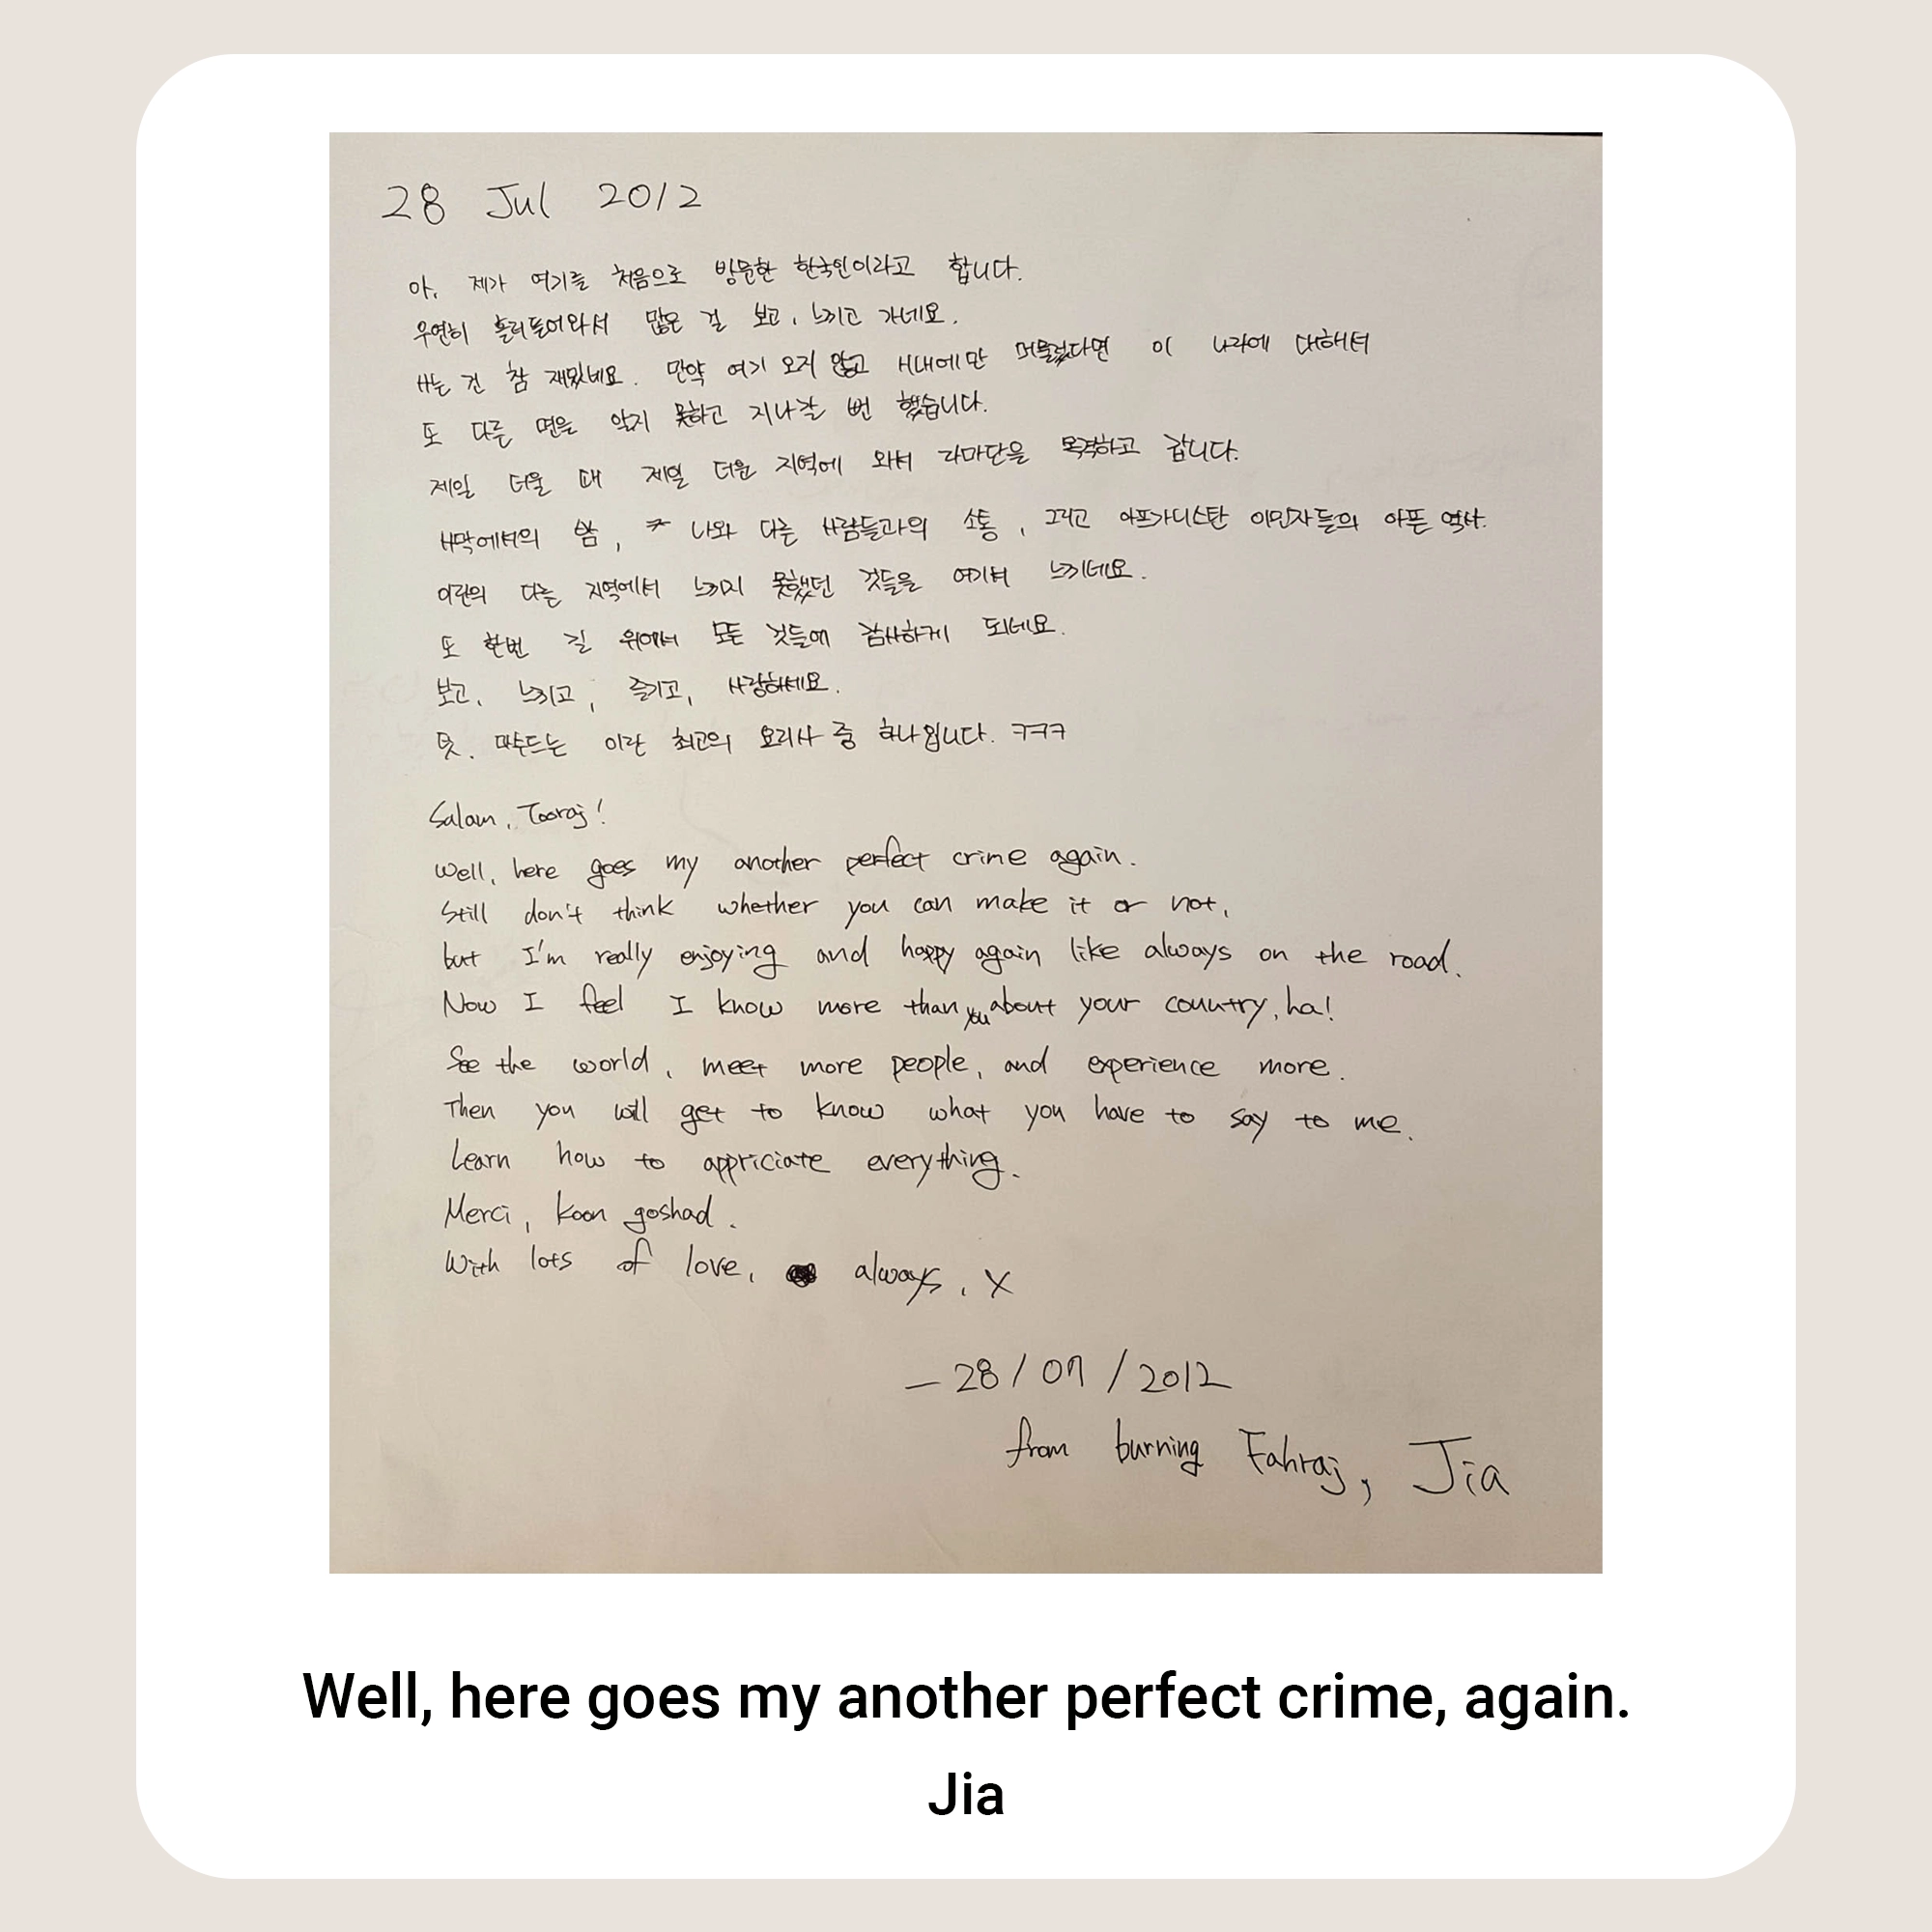 28 Jul 2012
아, 제가 여기를 처음으로 방문한 한국인이라고 합니다.
우연히 흘러들어와서 많은 걸 보고, 느끼고 가네요.
사는 건 참 재밌네요. 만약 여기 오지 않고 시내에만 머물렀다면 이 나라에 대해서
또 다른 면을 알지 못하고 지나갈 번 했습니다.
제일 더울 때 제일 더운 지역에 와서 라마단을 목격하고 갑니다.
사막에서의 밤, 나와 다른 사람들과의 소통, 그리고 아프가니스탄 이민자들의 아픈 역사.
이란의 다른 지역에서 느끼지 못했던 것들을 여기서 느끼네요.
또 한번 길 위에서 모든 것들에 감사하게 되네요.
보고, 느끼고, 즐기고, 사랑하세요.
덧. 마수드는 이란 최고의 요리사 중 하나입니다. ㅋㅋㅋ
Salam, Tooraj!
Well, here goes my another perfect crime again.
Still don't think whether you can make it or not,
but I'm really enjoying and happy again like always on the road.
Now I feel I know more than you about your country, ha!
See the world, meet more people, and experience more.
Then you will get to know what you have to say to me.
Learn how to appriciate everything.
Merci, koon goshad.
With lots of love, always, x
– 28/07/2012
from burning Fahraj, Jia
Well, here goes my another perfect crime, again.
Jia